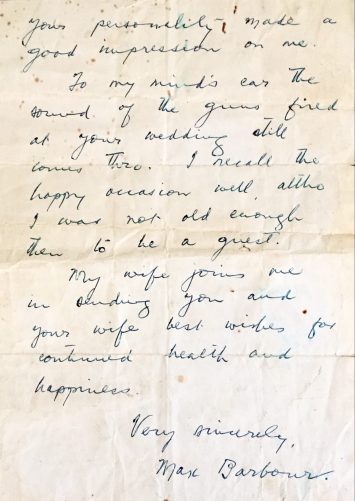 your personality made a
good impression on me.
To my mind's ear the
sound of the guns fired
at your wedding still
comes thro. I recall the
happy occasion well altho
I was not old enough
then to be a guest.
My wife joins me
in sending you and
your wife best wishes for
continued health and
happiness.
Very sincerely,
Max Barbour.